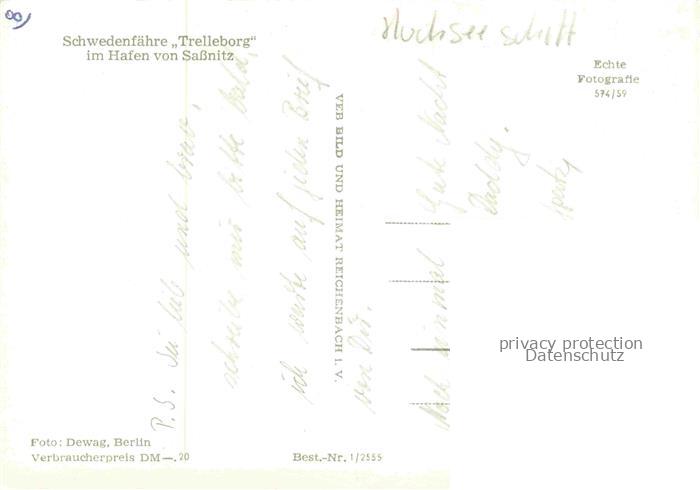 00)
Hochseeschiff
Schwedenfähre „Trelleborg“
im Hafen von Saßnitz
Echte
Fotografie
574/59
P.S. Sei lieb und brav,
schreibe mir bitte bald,
ich warte auf jeden Brief
von Dir.
VEB BILD UND HEIMAT REICHENBACH I. V.
Noch einmal Gute Nacht
Daddy.
privacy protection
Datenschutz
Foto: Dewag, Berlin
Verbraucherpreis DM —.20
Best.-Nr. 1/2555